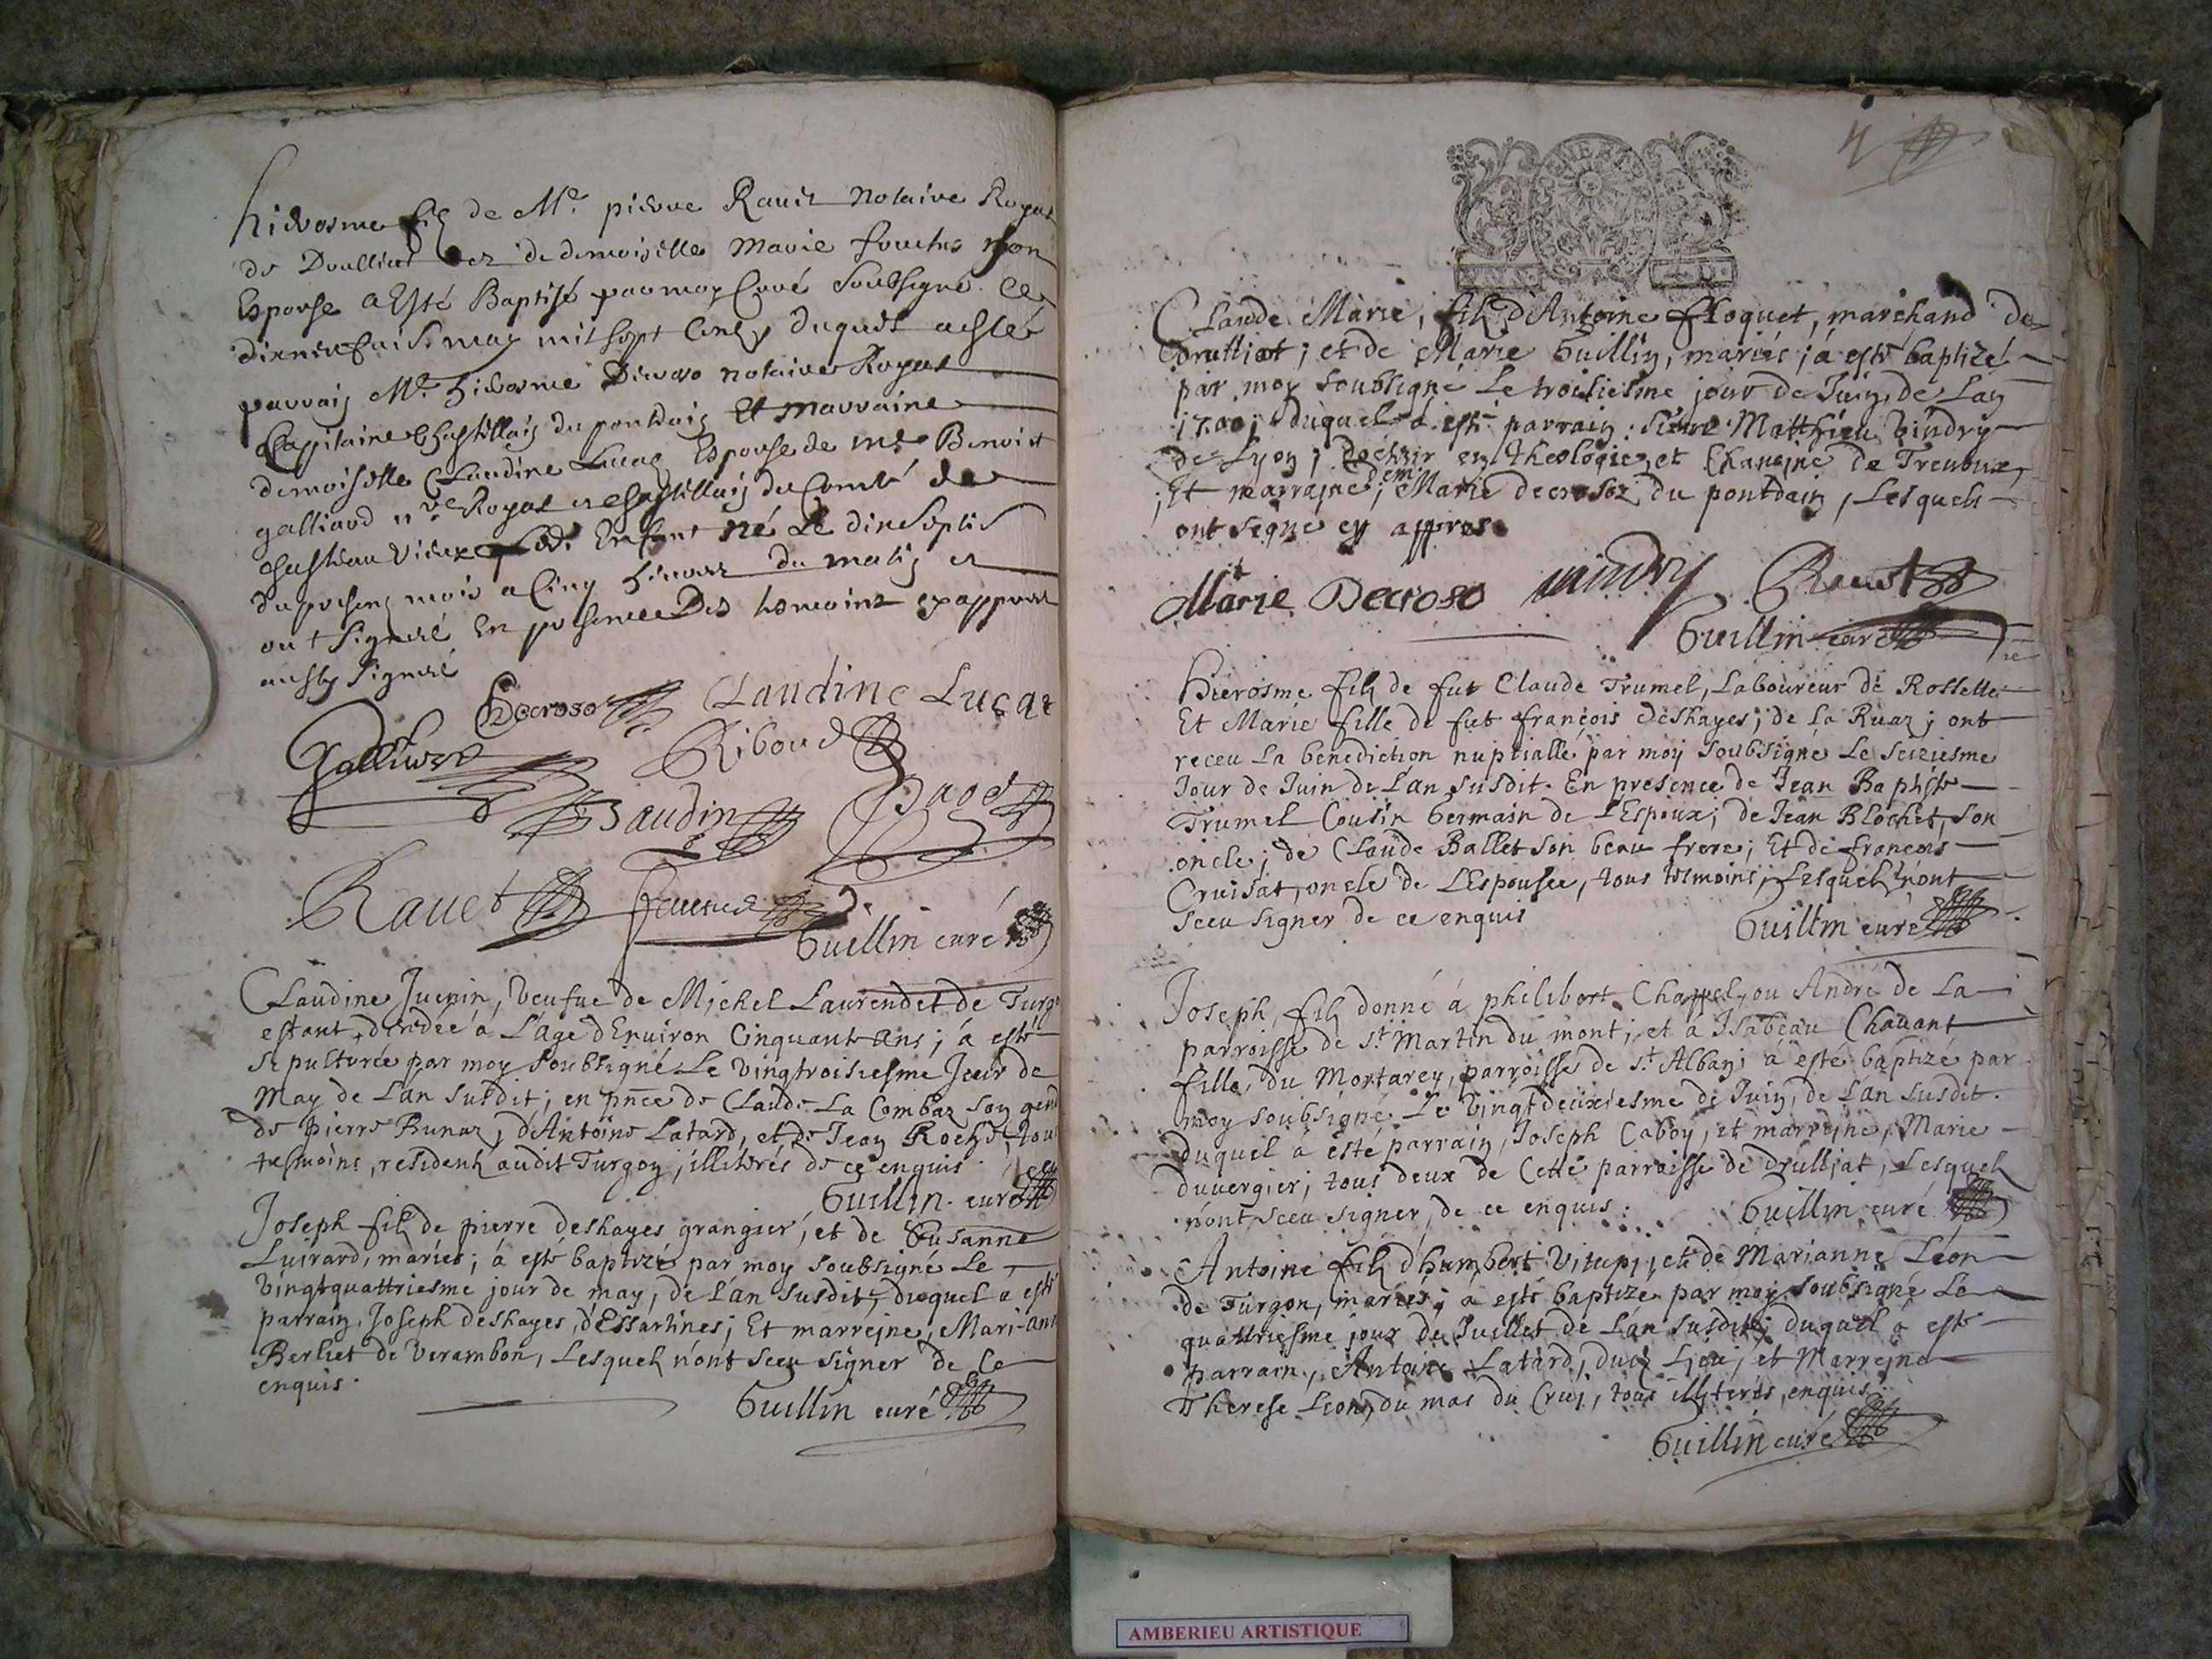 hierosme fils de Me. pierre Ravet notaire Royal
de Drulliat et de demoiselle Marie son
Espouse a Esté Baptisé par moy Curé Soubsigné ce
may mil sept Cents duquel a esté
parrain Me. hierosme Decroso notaire Royal
Capitaine Chastellain du pontdain Et marraine
demoiselle Claudine Lucas Espouse de me Benoist
galliard nre Royal et Chastellain du Comté de
Chasteau Vieux Enfant né Le dixseptie
du present mois a Cinq heures du matin et
ont Signéz En presence Des tesmoins
aussy Signéz
Decroso Claudine Lucas
Galliard Riboud
Baudin
Ravet
Guillin curé
Claudine Juenin, veufue de Michel Laurendet de Turgo
estant décédée à L'age d'Enuiron Cinquante ans; à esté
sepulturée par moy soubsigné Le vingtroisiesme Jour de
May de L'an susdit; en pnce de Claude La Combaz son gend
de Pierre Bunaz, d'Antoine Latard, et de Jean Roche, tou
tesmoins, residents audit Turgon, illiterés de ce enquis.
Guillin curé
Joseph fils de pierre deshayes grangier, et de Susanne
Luirard, mariés; à esté baptizé par moy soubsigné Le
vingtquattriesme jour de may, de L'an susdit, duquel a esté
parrain, Joseph deshayes, d'Essartines; Et marreine, Mari-ann
Berliet de Varambon, Lesquels n'ont sceu signer de Ce
enquis.
Guillin curé
Claude Marie, fils d'Antoine Floquet, marchand de
Drulliat; et de Marie Guillin, mariés; à esté baptizé
par moy soubsigné Le troisiesme jour de Juin, de L'an
1700; duquel à esté parrain: sieur Matthieu Vindry
de Lyon, docteur en theologie, et Chanoine de Treuoux,
Et marraine, demlle Marie decrosoz du pontdain, Lesquels
ont signé en appres.
Marie Decroso vindry Ravet
Guillin curé
Hierosme fils de fut Claude Trumel, Laboureur de Rosselle
Et Marie fille de fut françois deshayes, de La Ruaz; ont
receu La benediction nuptialle par moy soubsigné Le seiziesme
Jour de Juin de L'an susdit. En presence de Jean Baptiste
Trumel Cousin Germain de L'Espoux; de Jean Blochet, son
oncle; de Claude Ballet son beau frere; Et de françois
Cruisat, oncle de L'Espousee, tous tesmoins; Lesquels n'ont
sceu signer de ce enquis
Guillin curé
Joseph, fils donné à philibert Chappel, ou André de La
parroisse de St. Martin du mont; et a Isabeau Chavant
fille, du Mortarey, parroisse de St. Alban; à esté baptizé par
moy soubsigné Le vingtdeuxiesme de Juin, de L'an susdit.
duquel à esté parrain, Joseph Caboy, et marreine, Marie
duvergier; tous deux de Cette parroisse de drulliat, Lesquels
n'ont sceu signer, de ce enquis. Guillin curé
Antoine fils d'humbert Vitupi, et de Marianne Léon
de Turgon, mariés; a esté baptizé par moy soubsigné Le
quattriesme jour de Juillet de L'an susdit; duquel à esté
parrain, Antoine Latard, dud Lieu; et Marreine
Therese Leon, du mas du Cruj, tous illiterés, enquis.
Guillin curé
AMBERIEU ARTISTIQUE